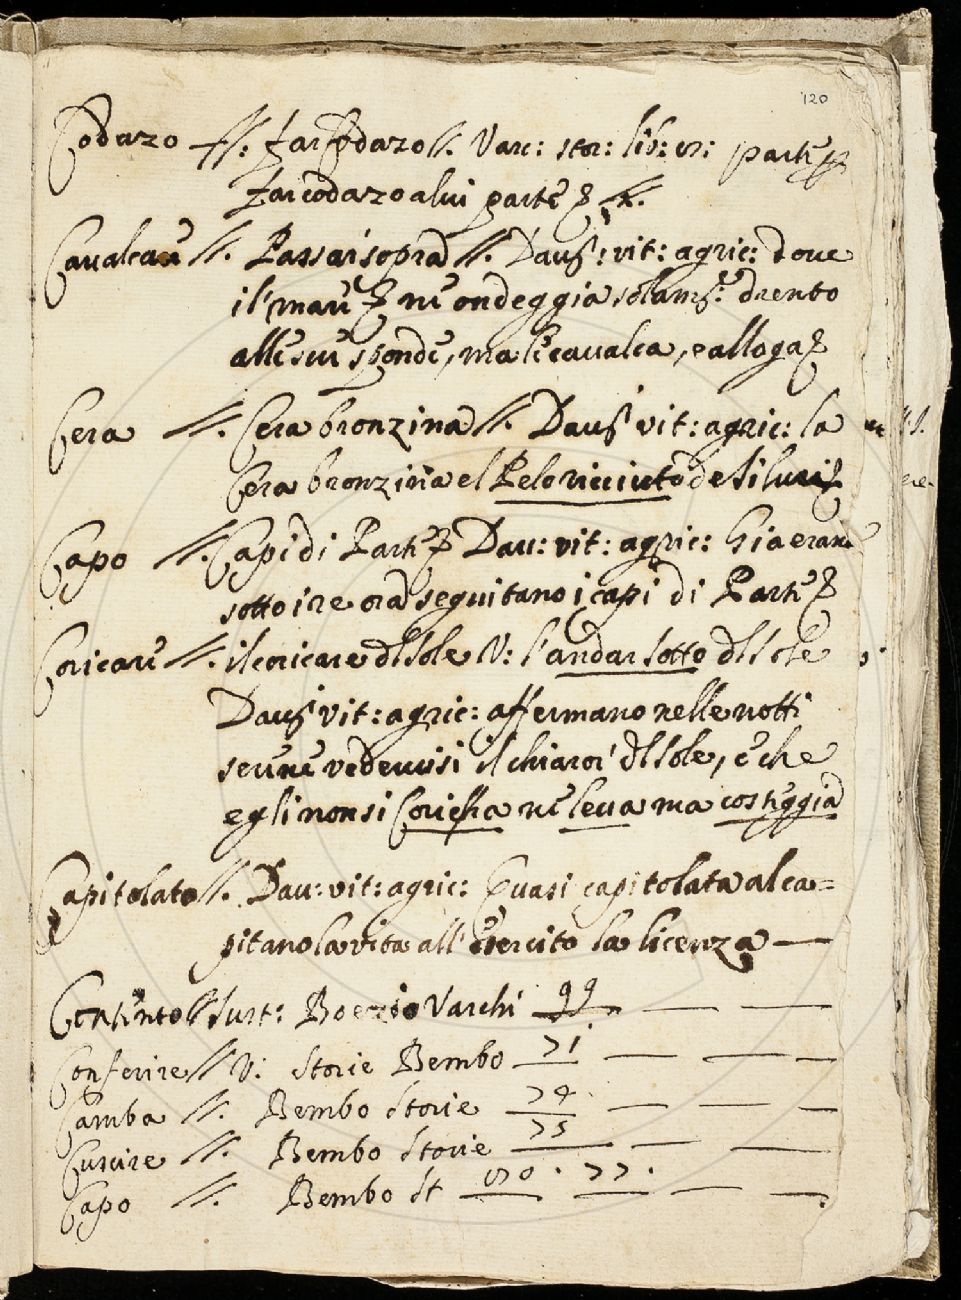 120
Codazo //. far codazo //. Varc: stor: lib: 
far codazo a lui parte //.
Cavalcare //. Passar sopra //. Dav: vit: agric: dove
il mare nè ondeggia solam: drento
alle sue sponde, ma le cavalca, e alloga
Cera //. Cera bronzina //. Dav: vit: agric: la
Cera bronzina el Pelo ricciuto de Siluri
Capo //. Capi di Parte Dav: vit: agric: Gia erano
sotto i re ora seguitano i capi di Parte
Coricare //. il coricare dl sole V: l'andar sotto dl sole
Dav: vit: agric: affermano nelle notti
serene vedervisi il chiaror dl sole, e che
egli non si Coricha nè leva ma costeggia
Capitolato //. Dav: vit: agric: Quasi capitolata al ca=
pitano la vita all'esercito la licenza —
Contento // sust: Boezio Varchi 99 — —
Conferire // V: Storie Bembo 71 — — —
Camba //. Bembo Storie 74 — — —
Cuscire //. Bembo Storie 75 — —
Capo //. Bembo St 77 . — —